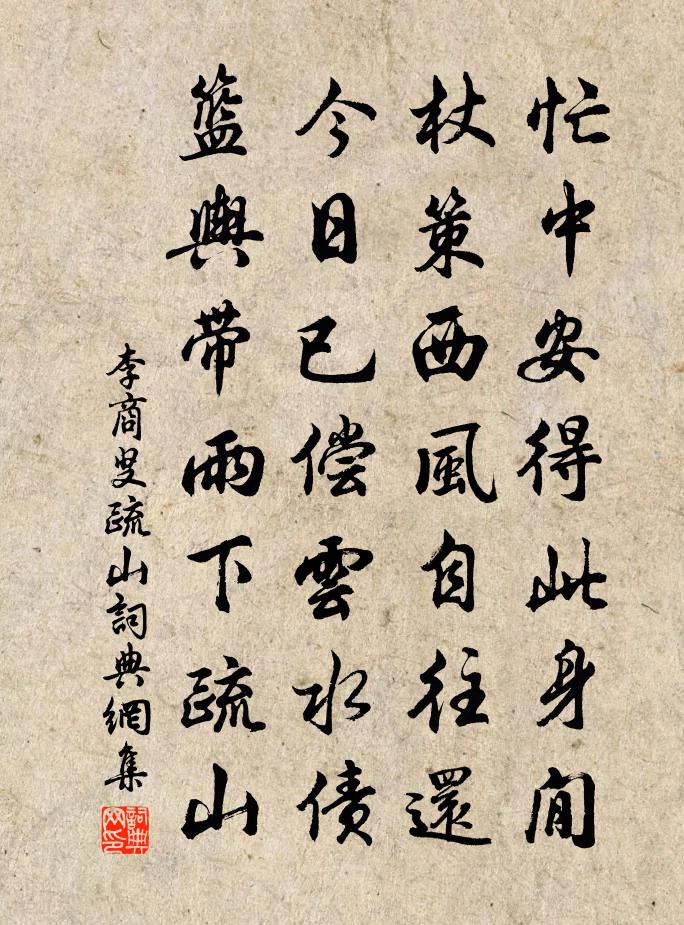 忙中安得此身閒
杖策西風自往還
今日已偿雲水债
籃輿帶雨下疏山
李商叟疏山詞典網集
詞典网印